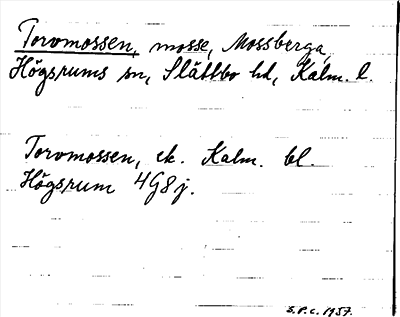 Torvmossen, mosse, Mossberga,
Högsrums sn, Slättbo hd, Kalm. l.
Torvmossen, ek. Kalm. bl.
Högsrum 4G8j.
S.P.C. 1957.